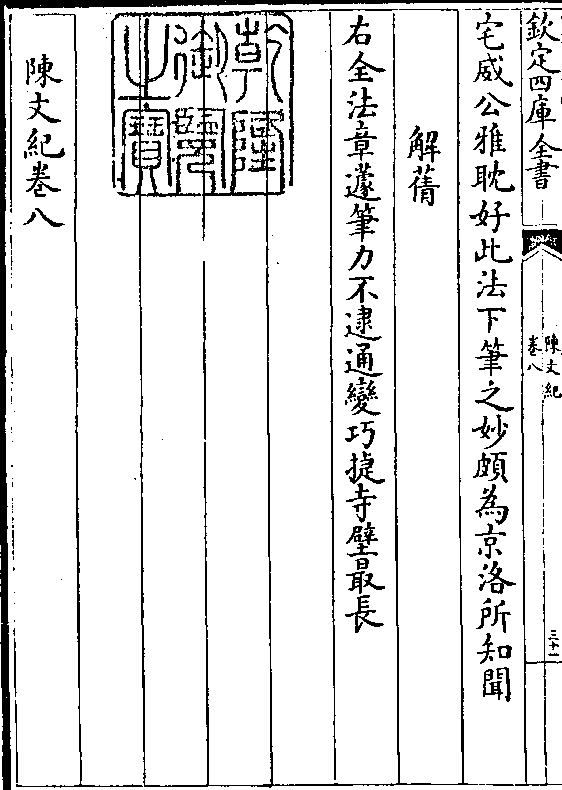 欽定四庫全書
陳文紀
卷八
三十二
宅威公雅耽好此法下筆之妙頗為京洛所知聞
解蒨
右全法章蘧筆力不逮通變巧捷寺壁最長
乾隆御覽之寶
陳文紀卷八